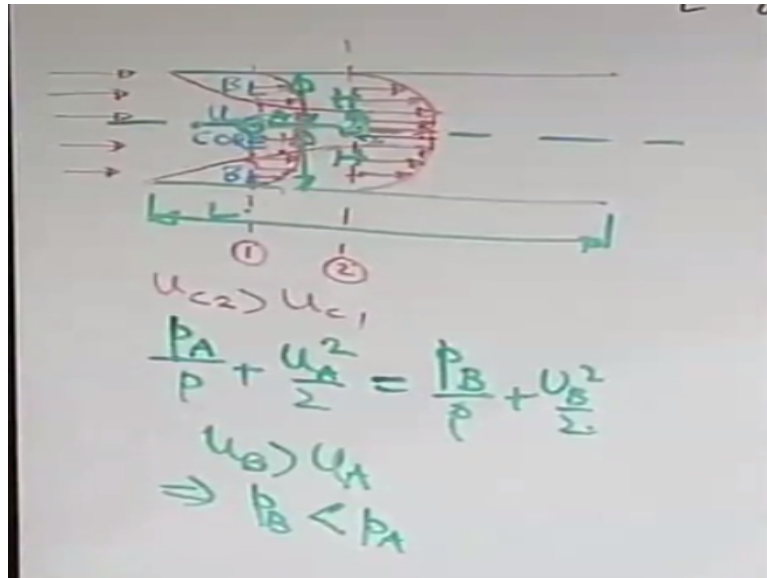 BL
CORE
BL
L
① ②
U_{C2} > U_{C1}
\frac{p_A}{ρ} + \frac{u_A^2}{2} = \frac{p_B}{ρ} + \frac{u_B^2}{2}
u_B > u_A
⇒ p_B < p_A